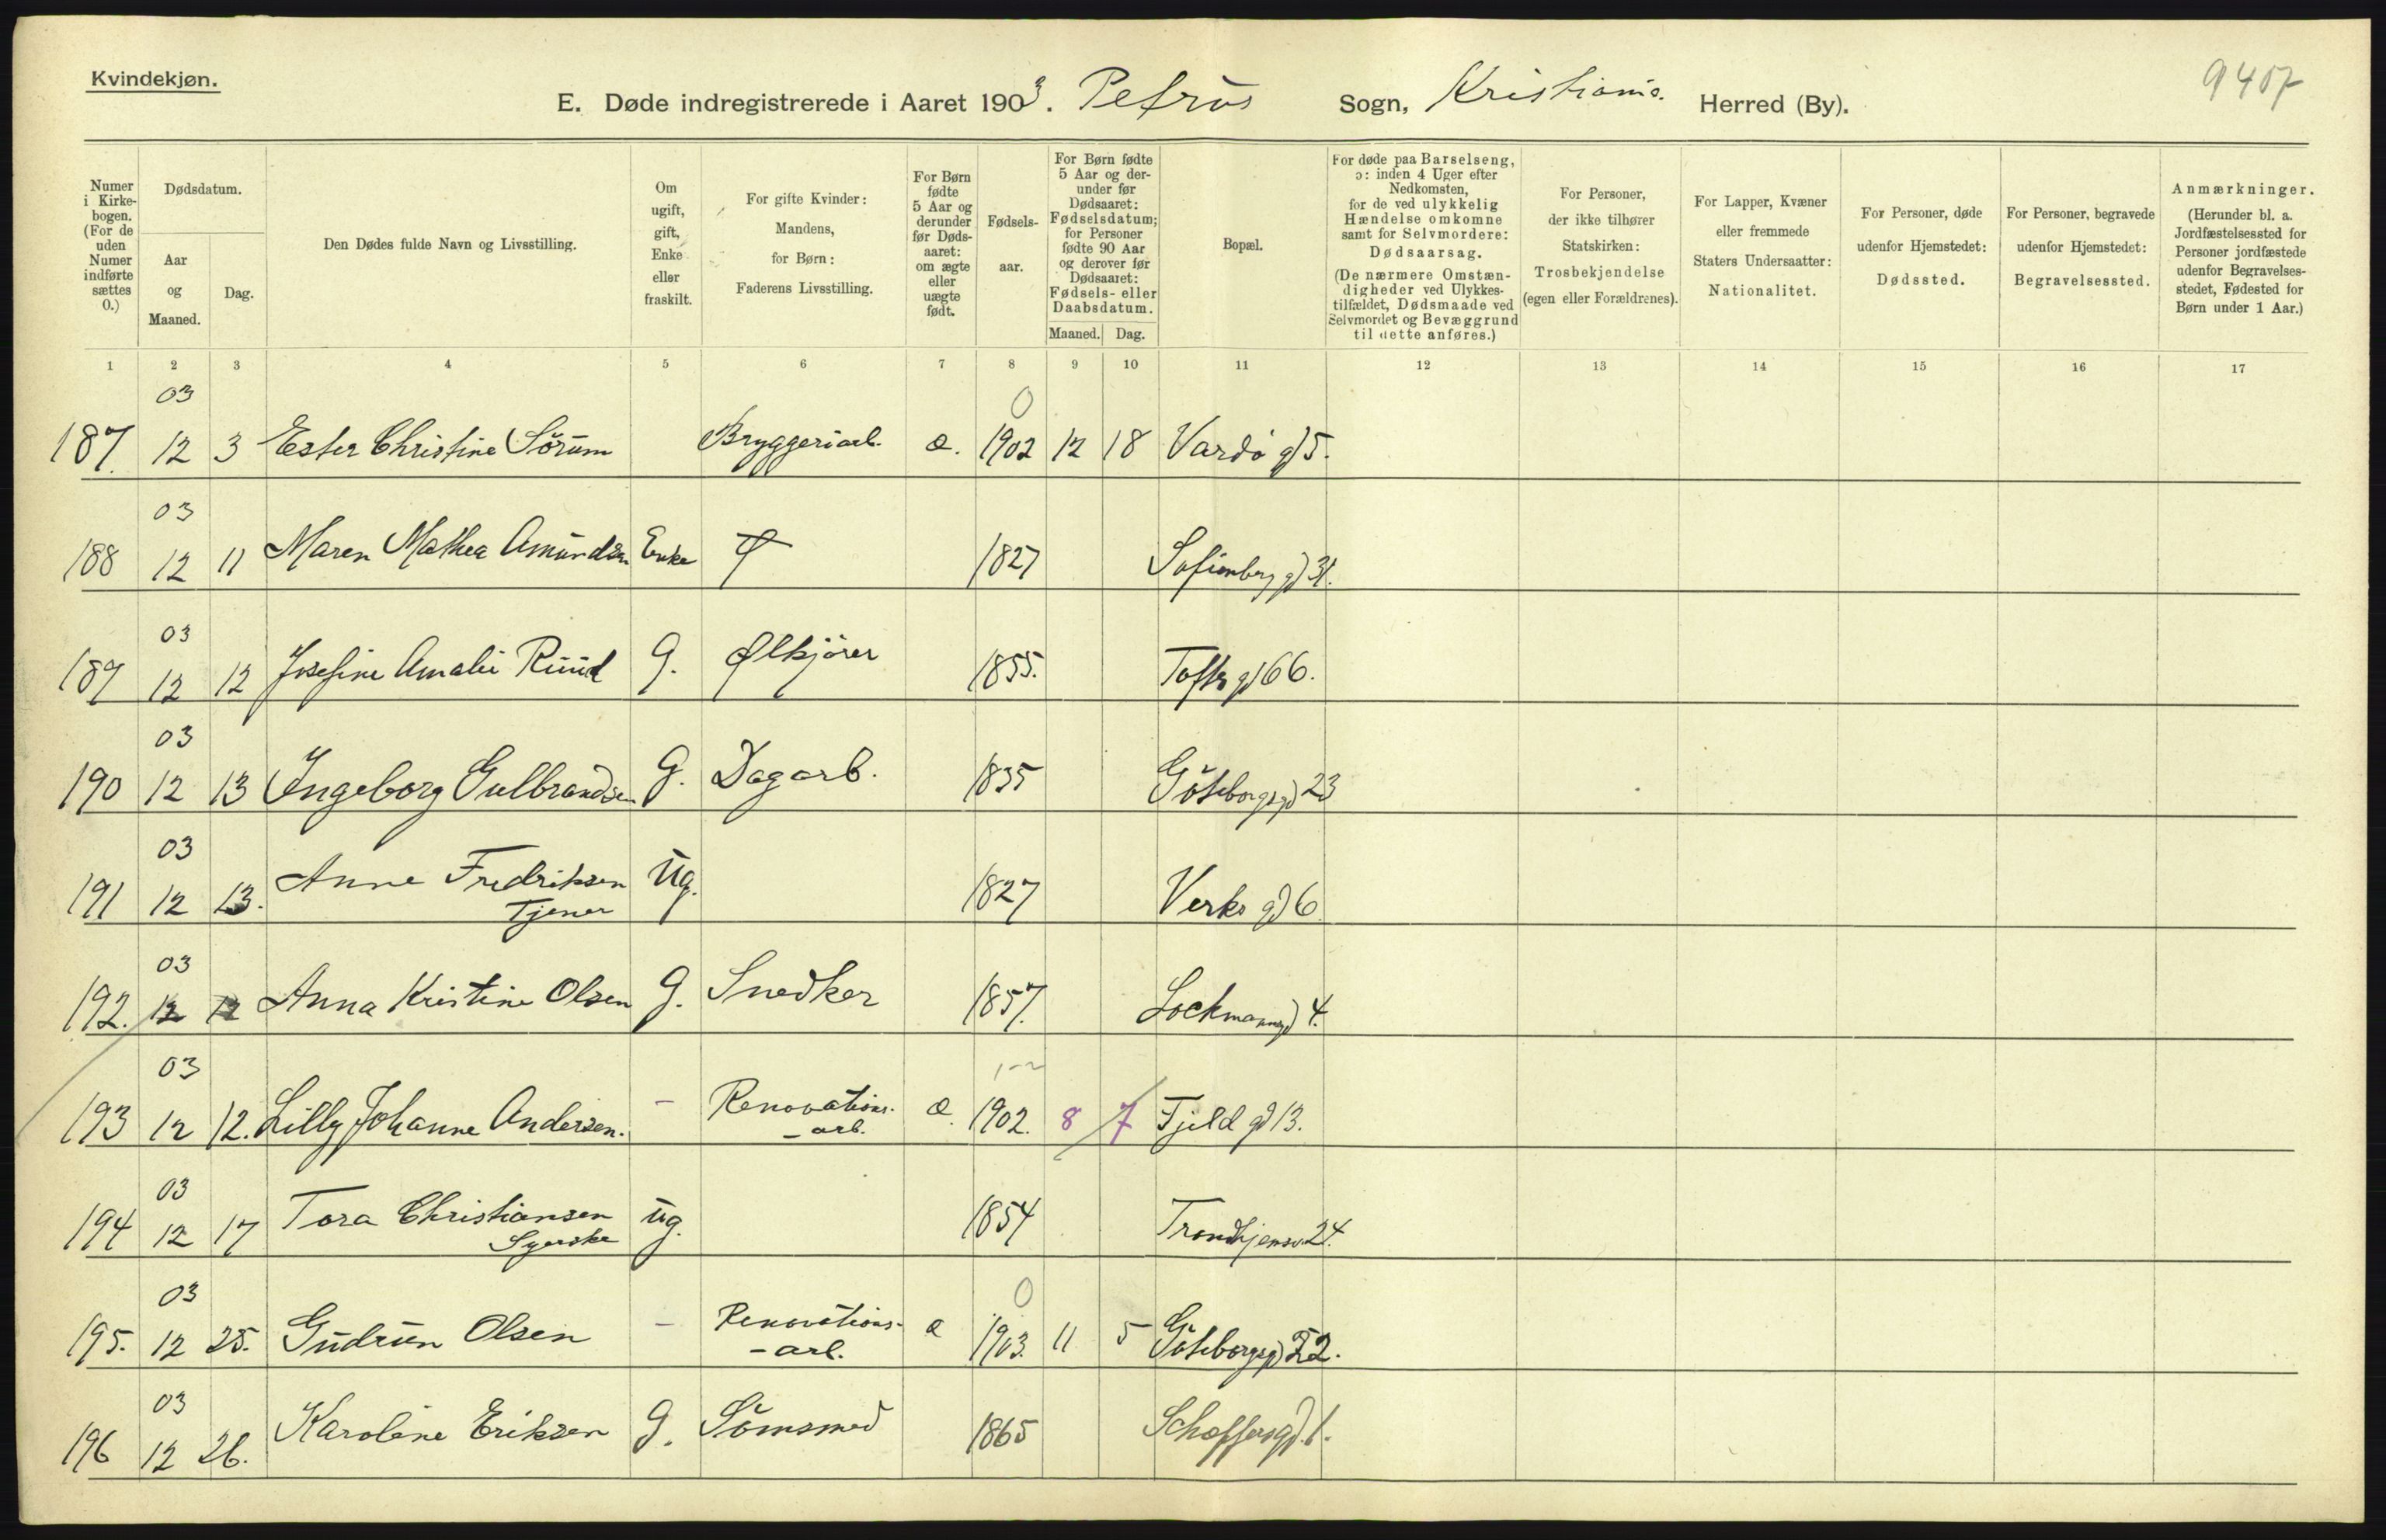 Kvindekjøn.
9407
E. Døde indregistrerede i Aaret 1903. Petrus Sogn, Kristiania. Herred (By).
Numer i Kirkebogen. (For de uden Numer indførte sættes 0.)
Dødsdatum.
Aar og Maaned.
Dag.
Den Dødes fulde Navn og Livsstilling.
Om ugift, gift, Enke eller fraskilt.
For gifte Kvinder: Mandens, for Børn: Faderens Livsstilling.
For Børn fødte 5 Aar og derunder før Dødsaaret: om ægte eller uægte født.
Fødselsaar.
For Børn fødte 5 Aar og derunder før Dødsaaret: Fødselsdatum; for Personer fødte 90 Aar og derover før Dødsaaret: Fødsels- eller Daabsdatum.
Maaned. Dag.
Bopæl.
For døde paa Barselseng, ɔ: inden 4 Uger efter Nedkomsten, for de ved ulykkelig Hændelse omkomne samt for Selvmordere: Dødsaarsag. (De nærmere Omstændigheder ved Ulykkestilfældet, Dødsmaade ved Selvmordet og Bevæggrund til dette anføres.)
For Personer, der ikke tilhører Statskirken: Trosbekjendelse (egen eller Forældrenes).
For Lapper, Kvæner eller fremmede Staters Undersaatter: Nationalitet.
For Personer, døde udenfor Hjemstedet: Dødssted.
For Personer, begravede udenfor Hjemstedet: Begravelsessted.
Anmærkninger. (Herunder bl. a. Jordfæstelsessted for Personer jordfæstede udenfor Begravelsesstedet, Fødested for Børn under 1 Aar.)
1 2 3 4 5 6 7 8 9 10 11 12 13 14 15 16 17
03 0
187. 12 3 Ester Christine Sörum Bryggeriarb. æ. 1902 12 18 Vardö gd 5.
03
188 12 11 Maren Mathea Amundsen Enke ✝ 1827 Sofienberg gd 31.
03
189 12 12 Josefine Amalie Ruud G. Ølkjörer 1855. Toftes gd 66.
03
190 12 13 Ingeborg Gulbrandsen G. Dagarb. 1835 Göteborgs gd 23
03
191 12 13. Anne Fredriksen Ug. 1827 Verks gd 6
Tjener
03
192. 12 12 Anna Kristine Olsen G. Snedker 1857. Lockmanns gd 4.
03 1-2
193 12 12. Lilly Johanne Andersen. - Renovations- æ. 1902. 8 7 Fjeld gd 13.
-arb.
03
194 12 17 Tora Christiansen ug. 1854 Trondhjemsv. 24.
Syerske
03 0
195. 12 25. Gudrun Olsen - Renovations- æ 1903. 11 5 Göteborgsgd 22.
-arb.
03
196 12 26. Karoline Eriksen G. Sömsmed 1865 Schoffersgd. 1.